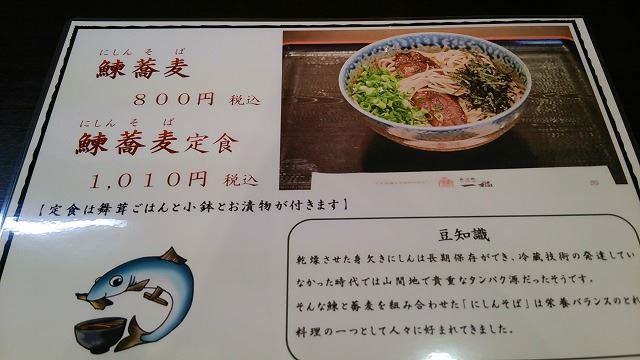 にしんそば
鰊蕎麦
800円 税込
にしんそば
鰊蕎麦定食
1,010円 税込
【定食は舞茸ごはんと小鉢とお漬物が付きます】
豆知識
乾燥させた身欠きにしんは長期保存ができ、冷蔵技術の発達してい
なかった時代では山間地で貴重なタンパク源だったそうです。
そんな鰊と蕎麦を組み合わせた「にしんそば」は栄養バランスのとれ
料理の一つとして人々に好まれてきました。